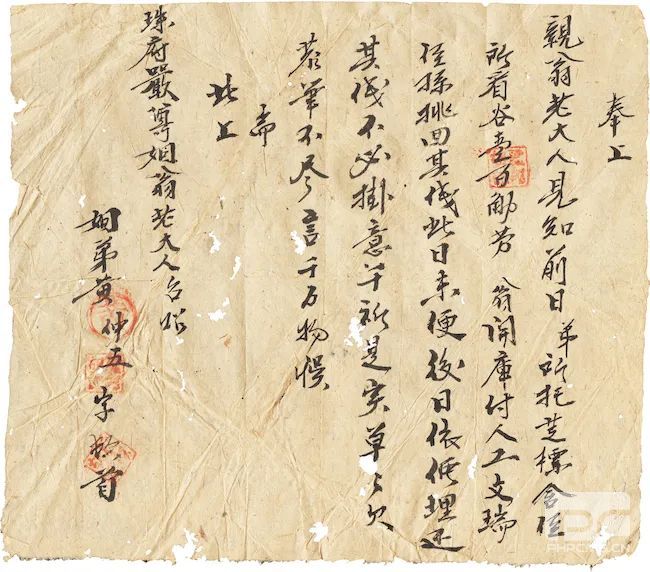 奉上
親翁老大人見知前日弟所托楚標舍侄
所看谷壹百觔劳 翁開庫付人工文瑞
侄孫挑回其伐此日未便後日依価理还
其伐不必掛意千祈是实草々欠
恭筆不尽言千万物悞
此上 斋
珠府嚴尊姻翁老大人台照
姻弟黄仲五字